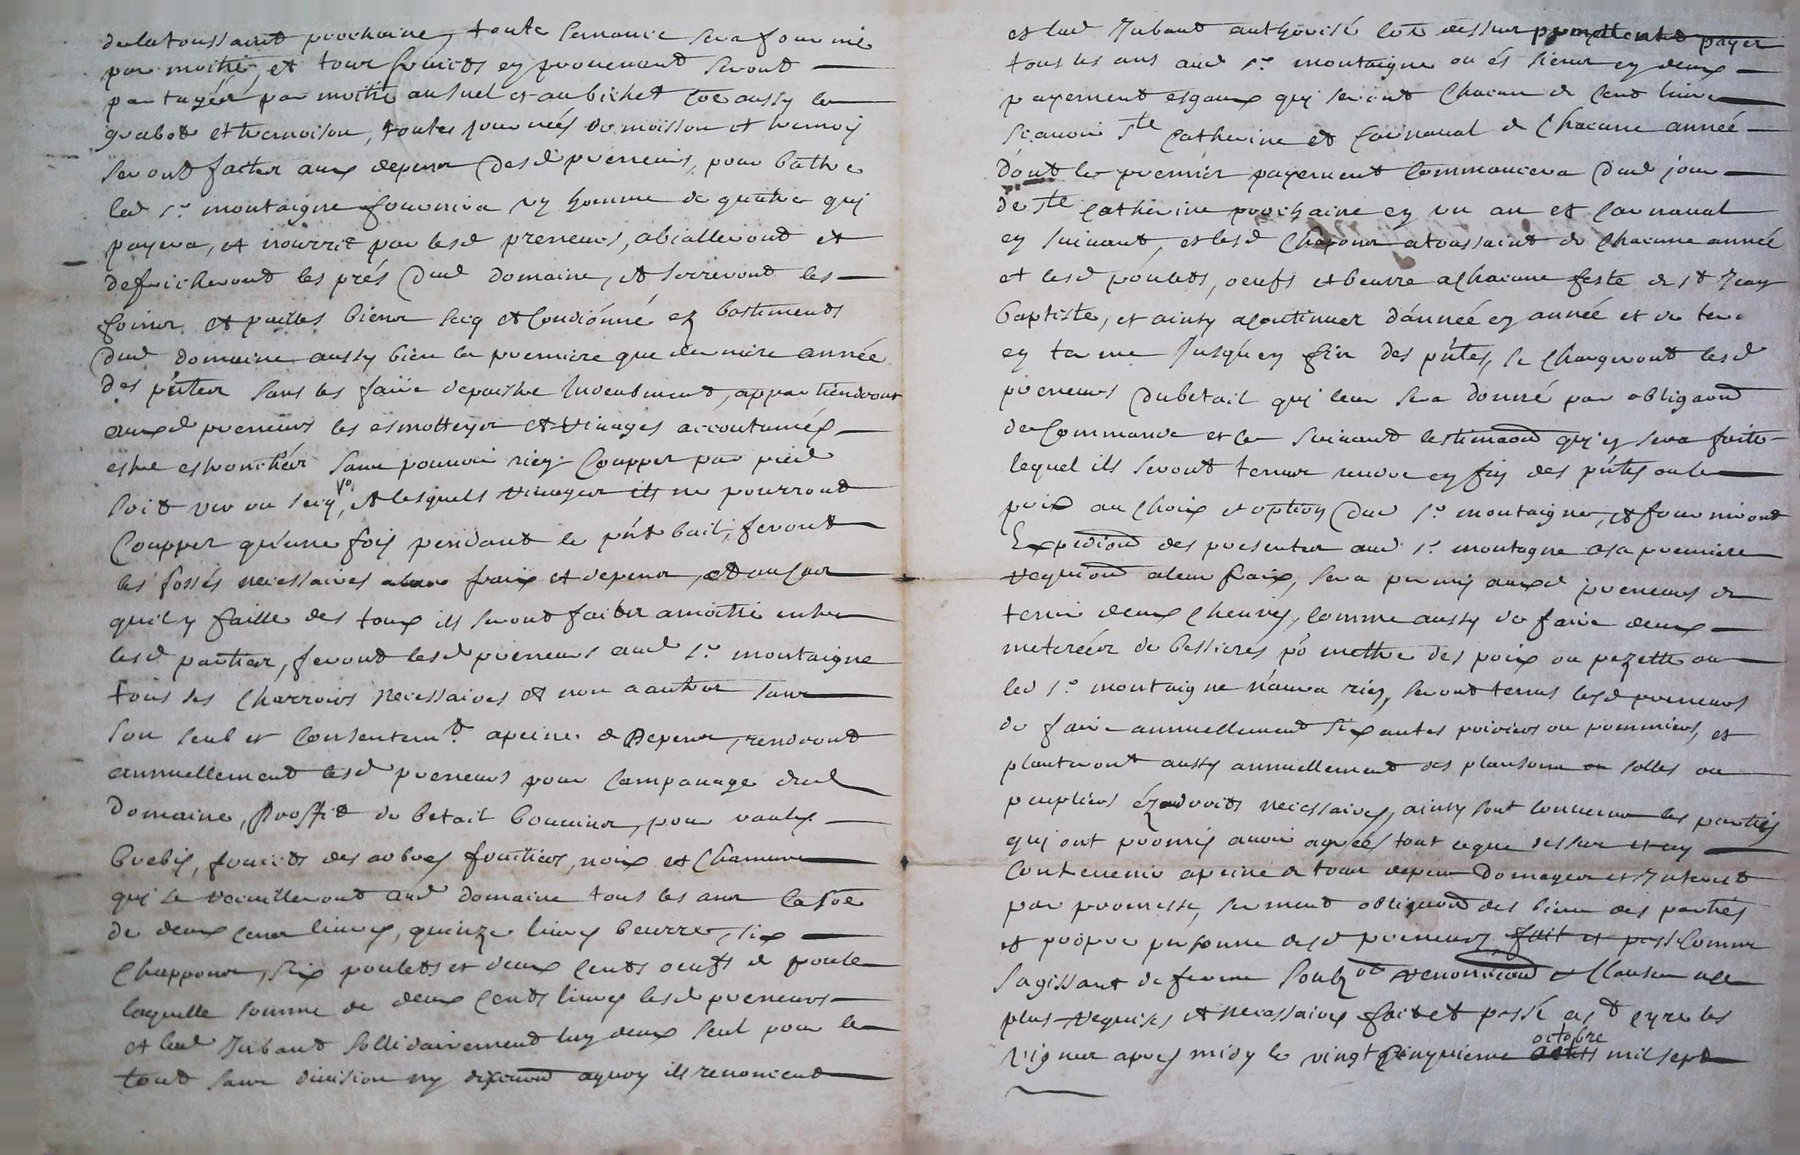 de la toussaint prochaine, toute semance sera fournie
par moitié, et tous fruicts en provenant seront
partagés par moitié au suel et au bichet coe aussy le
grabot et ternoison, toutes journées de moisson et
seront faites aux depens desd preneurs, pour battre
led sr montaigne fournira un homme de quatre qui
payera, et nourrit par lesd preneurs, abialleront et
defricheront les prés dud domaine, et serreront les
foins et pailles biens secq et condionné ez bastiments
dud domaine aussy bien la premiere que derniere année
des pntes sans les faire depaistre induement, appartiendront
auxd preneurs les esmotteyes et vinages accoutumés
estre estronchés sans pouvoir rien coupper par pied
soit ver ou secq, et lesquels vinages ils ne pourront
coupper qu'une fois pendant le pnt bail, feront
les fossés necessaires a leurs fraix et depens, et au cas
qu'il y faille des toux ils seront faits a moitié entre
lesd parties, feront lesd preneurs aud sr montaigne
tous ses charrois necessaires et non a autres sans
son seul et consentemt a peine de depens, rendront
annuellement lesd preneurs pour campanage dud
domaine, proffit de betail bouvins, pourvantx
brebis, fruicts des arbres fruitiers, noix et chanvre
qui se recuilleront aud domaine tous les ans la soe
de deux cens livres, quinze livres beurre, six
chappons, six poulets et deux cents oeufs de poule
laquelle somme de deux cents livres lesd preneurs
et led Jubaud sollidairement luy deux seul pour le
tout sans division ny discution a quoy ils renoncent
et led Jubaud authorisé coe dessus promettent payer
tous les ans aud sr montaigne ou és siens en deux
payement esgaux qui seront chacun de cent livres
scavoir ste catherine et carnaval de chacune année
dont le premier payement commancera dud jour
de ste catherine prochaine en un an et carnaval
en suivant, et lesd chapons a toussaint de chacune année
et lesd poulets, oeufs et beurre a chacune feste de st Jean
baptiste, et ainsy a continuer d'année en année et de ter-
en terme Jusqu'en fin des pntes, se chargeront lesd
preneurs du betail qui leur sera donné par obligaon
de commande et le suivant l'estimaon qui en sera faite
lequel ils seront tenus rendre en fin des pntes ou le
prix au choix et option dud sr montaigne, et fourniront
Expedion des presentes aud sr montagne a sa premiere
requion a leur fraix, sera permis auxd preneurs de
tenir deux chevres, comme aussy de faire deux
meterées de bessieres po mettre des poix ou pezette ou
led sr montaigne n'aura rien, seront tenus lesd preneurs
de faire annuellement six antes poiriers ou pommiers, et
planteront aussy annuellement des plansons ou solles ou
peupliers ez endroits necessaires, ainsy sont convenus les parties
qui ont promis avoir agreés tout ce que dessus et ny
contrevenir a peine de tous depens Domages et Interest
par promesse, serment obligaon des biens des parties
et propre personne desd preneurs comme
s'agissant de ferme soubz renonciaon et clauses
plus requises et necessaires fait et passé a st cyr les
vignes apres midy le vingt cinquieme octobre mil sept